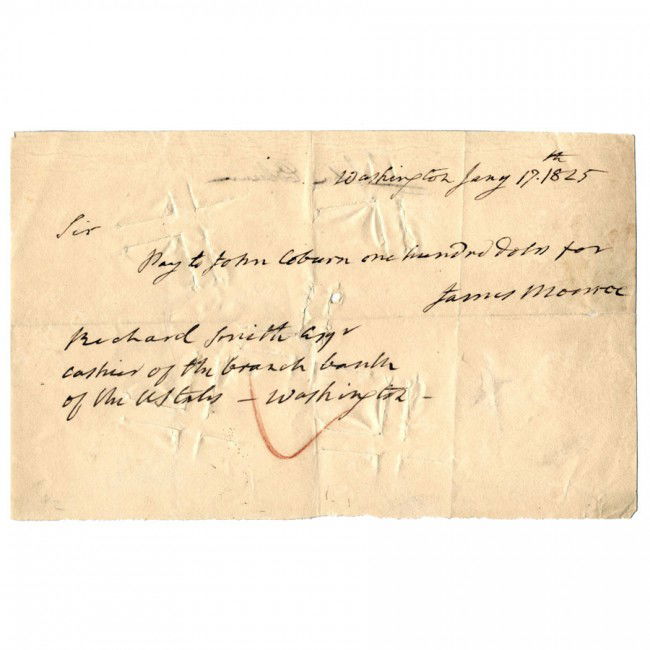 Washington Jany 17.th 1825
Sir
Pay to John Coburn one hundred dols for
James Monroe
Richard Smith Esqr
cashier of the branch bank
of the UStates – Washington –